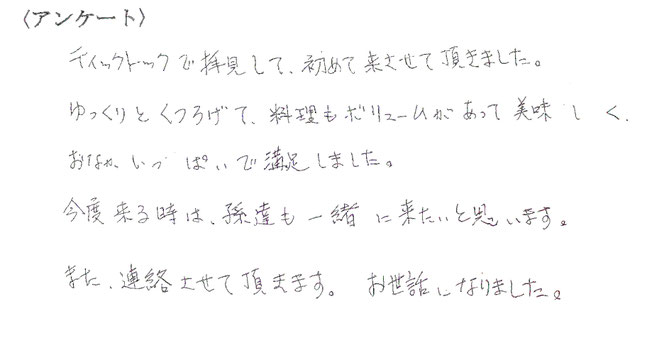 〈アンケート〉
ティックトックで拝見して、初めて来させて頂きました。
ゆっくりとくつろげて、料理もボリュームがあって美味しく、
おなかいっぱいで満足しました。
今度来る時は、孫達も一緒に来たいと思います。
また、連絡させて頂きます。 お世話になりました。